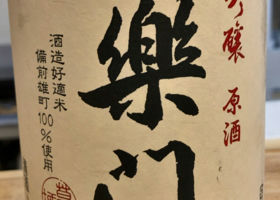 吟醸 原酒
樂門
酒造好適米
備前雄町100%使用